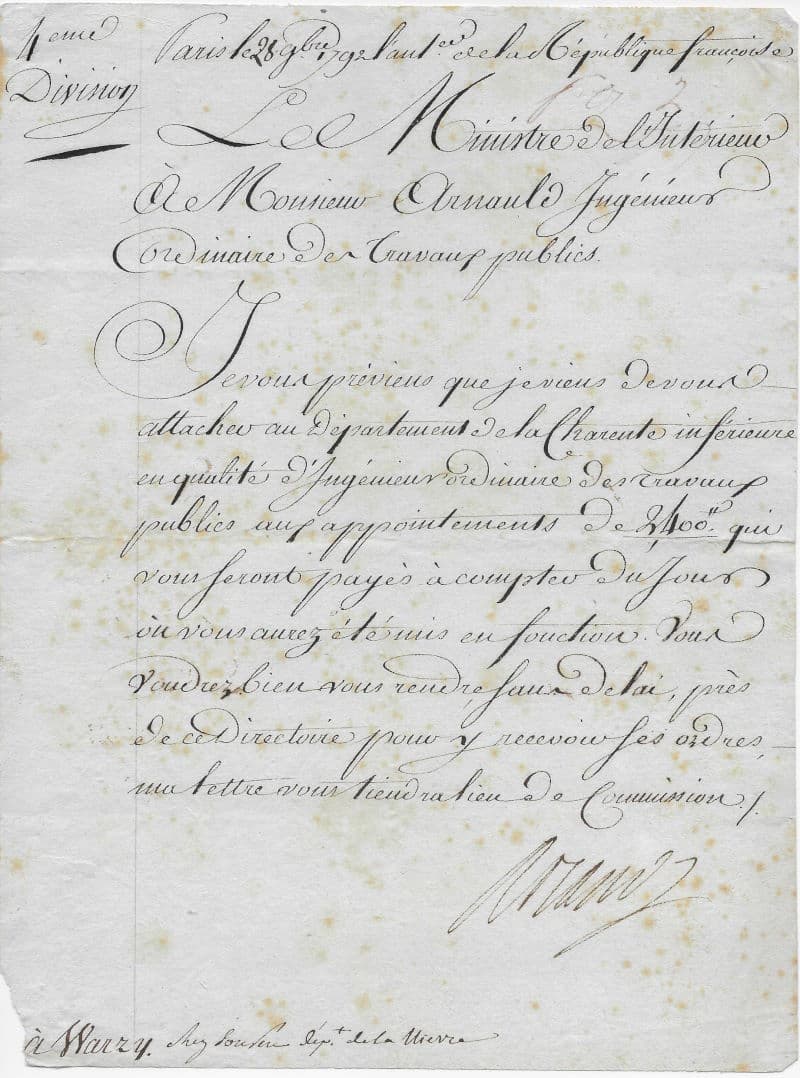 4eme
Division
Paris le 28 9bre 1792 l'an 1er de la République françoise
Le Ministre de l'Intérieur
À Monsieur Arnauld Ingénieur
Ordinaire des Travaux publics.
Je vous préviens que je viens de vous
attacher au Département de la Charente inférieure
en qualité d'Ingénieur ordinaire des travaux
publics aux appointements de 2,400tt qui
vous seront payés à compter du Jour
où vous aurez été mis en fonction. Vous
voudrez bien vous rendre, sans delai, près
de ce Directoire pour y recevoir ses ordres,
ma lettre vous tiendra lieu de Commission /.
à Warzy. chez son dépt. de la Nievre